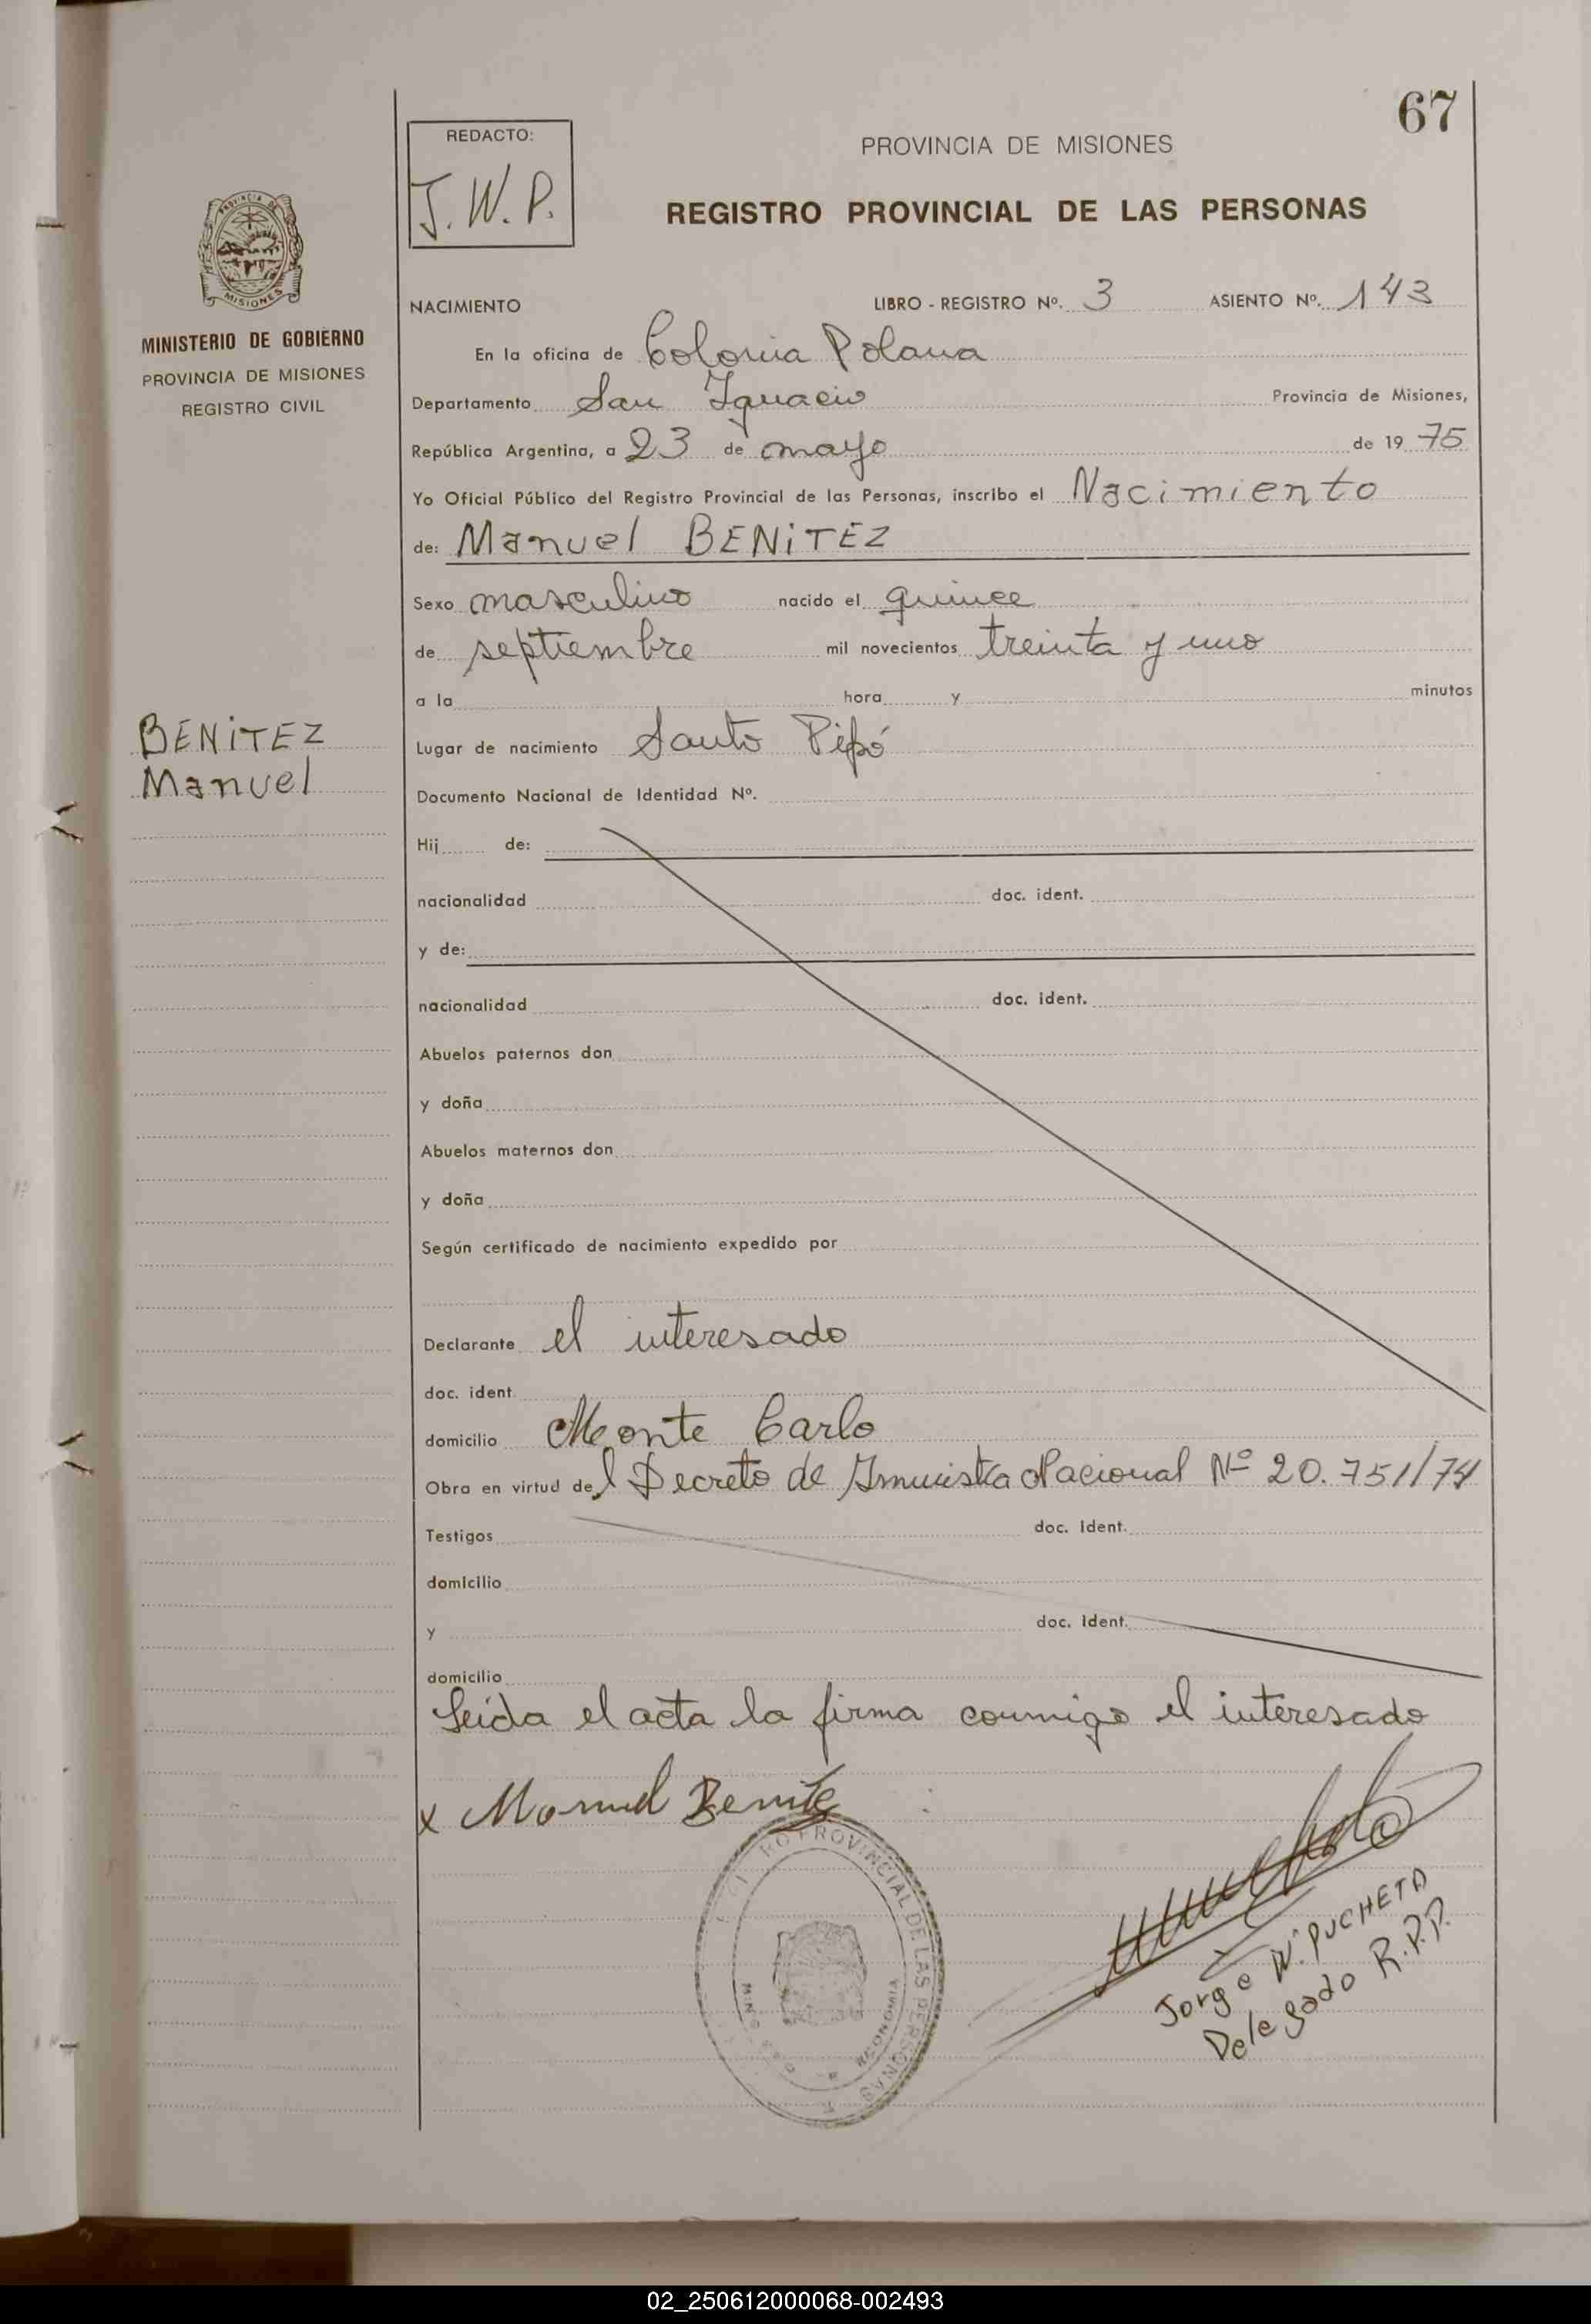 67
REDACTO:
J.W.P.
PROVINCIA DE MISIONES
REGISTRO PROVINCIAL DE LAS PERSONAS
MINISTERIO DE GOBIERNO
PROVINCIA DE MISIONES
REGISTRO CIVIL
NACIMIENTO LIBRO - REGISTRO Nº. 3 ASIENTO Nº. 143
En la oficina de Colonia Polana
Departamento San Ignacio Provincia de Misiones,
República Argentina, a 23 de mayo de 19 75
Yo Oficial Público del Registro Provincial de las Personas, inscribo el Nacimiento
de: Manuel BENiTEZ
Sexo masculino nacido el quince
de septiembre mil novecientos treinta y uno
a la hora y minutos
BENiTEZ
Manuel
Lugar de nacimiento Santo Pipó
Documento Nacional de Identidad Nº.
Hij de:
nacionalidad doc. ident.
y de:
nacionalidad doc. ident.
Abuelos paternos don
y doña
Abuelos maternos don
y doña
Según certificado de nacimiento expedido por
Declarante el interesado
doc. ident.
domicilio Monte Carlo
Obra en virtud del Decreto de Nacional Nº 20.751/74
Testigos doc. ident.
domicilio
y doc. ident.
domicilio
Leída el acta la firma conmigo el interesado
x Manuel Benitez
PROVINCIAL DE LAS PERSONAS
Jorge W. PUCHETA
Delegado R.P.P.
02_250612000068-002493